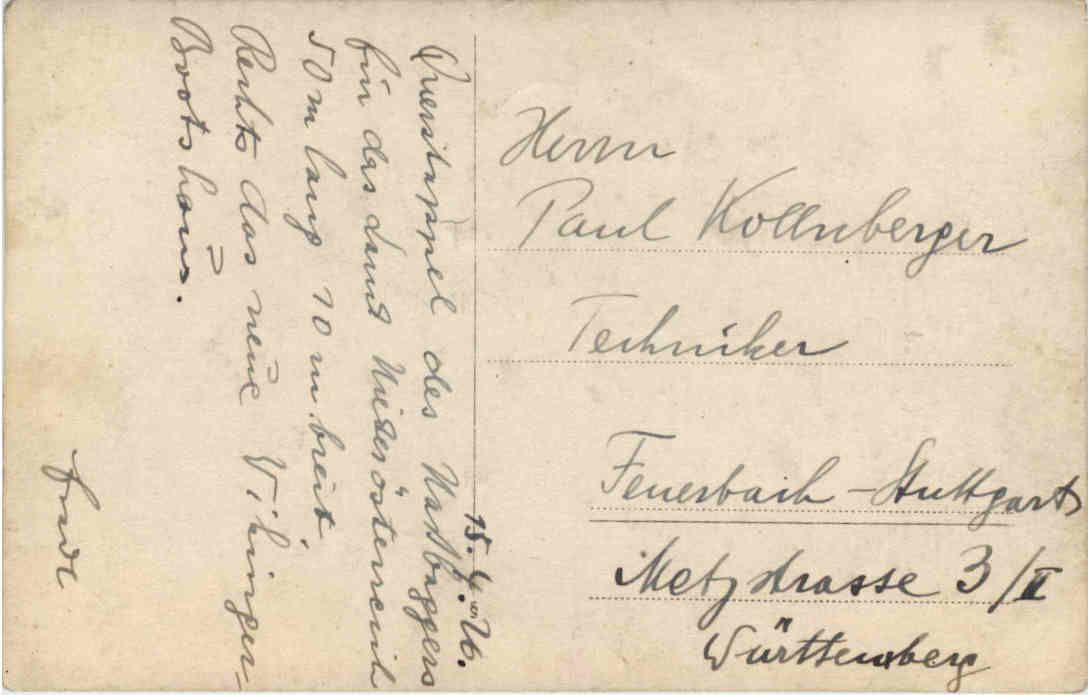 15. 4. 26.
Querstappel des Nassbaggers
für das Land Niederösterreich
50 m lang 10 m breit
Rechts das neue Vikinger-
Bootshaus.
Herrn
Paul Kollnberger
Techniker
Feuerbach-Stuttgart
Metzstrasse 3/II
Württemberg